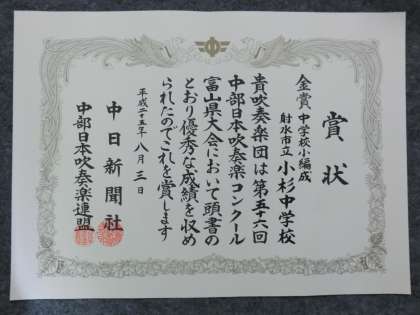 賞状
金賞 中学校小編成
射水市立 小杉中学校
貴吹奏楽団は第五十六回
中部日本吹奏楽コンクール
富山県大会において頭書の
とおり優秀な成績を収め
られたのでこれを賞します
平成二十五年八月三日
中日新聞社
中部日本吹奏楽連盟